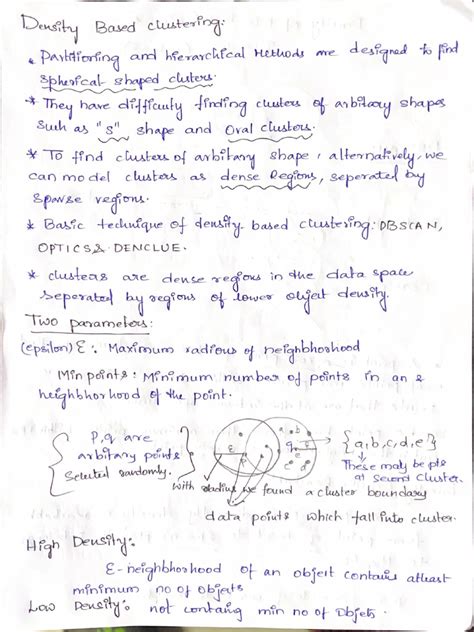 Density Based clustering:
* Partitioning and hierarchical Methods are designed to find
spherical shaped clusters.
* They have difficulty finding clusters of arbitary shapes
such as "s" shape and Oval clusters.
* To find clusters of arbitary shape, alternatively, we
can model clusters as dense Regions, seperated by
sparse regions.
* Basic technique of density based clustering: DBSCAN,
OPTICS & DENCLUE.
* clusters are dense regions in the data space
seperated by regions of lower object density.
Two parameters:
(epsilon) ε: Maximum radious of neighbhorhood
Min points: Minimum number of points in an ε
neighbhorhood of the point.
P,q are
arbitary points
Selected randomly.
ε
P
q
a
b
c
d
e
→ {a,b,c,d,e}
These may be pts
at second cluster.
with radius we found a cluster boundary
data points which fall into cluster.
High Density:
ε- neighbhorhood of an object contains atleast
minimum no of objects.
Low Density: not containg min no of objets.